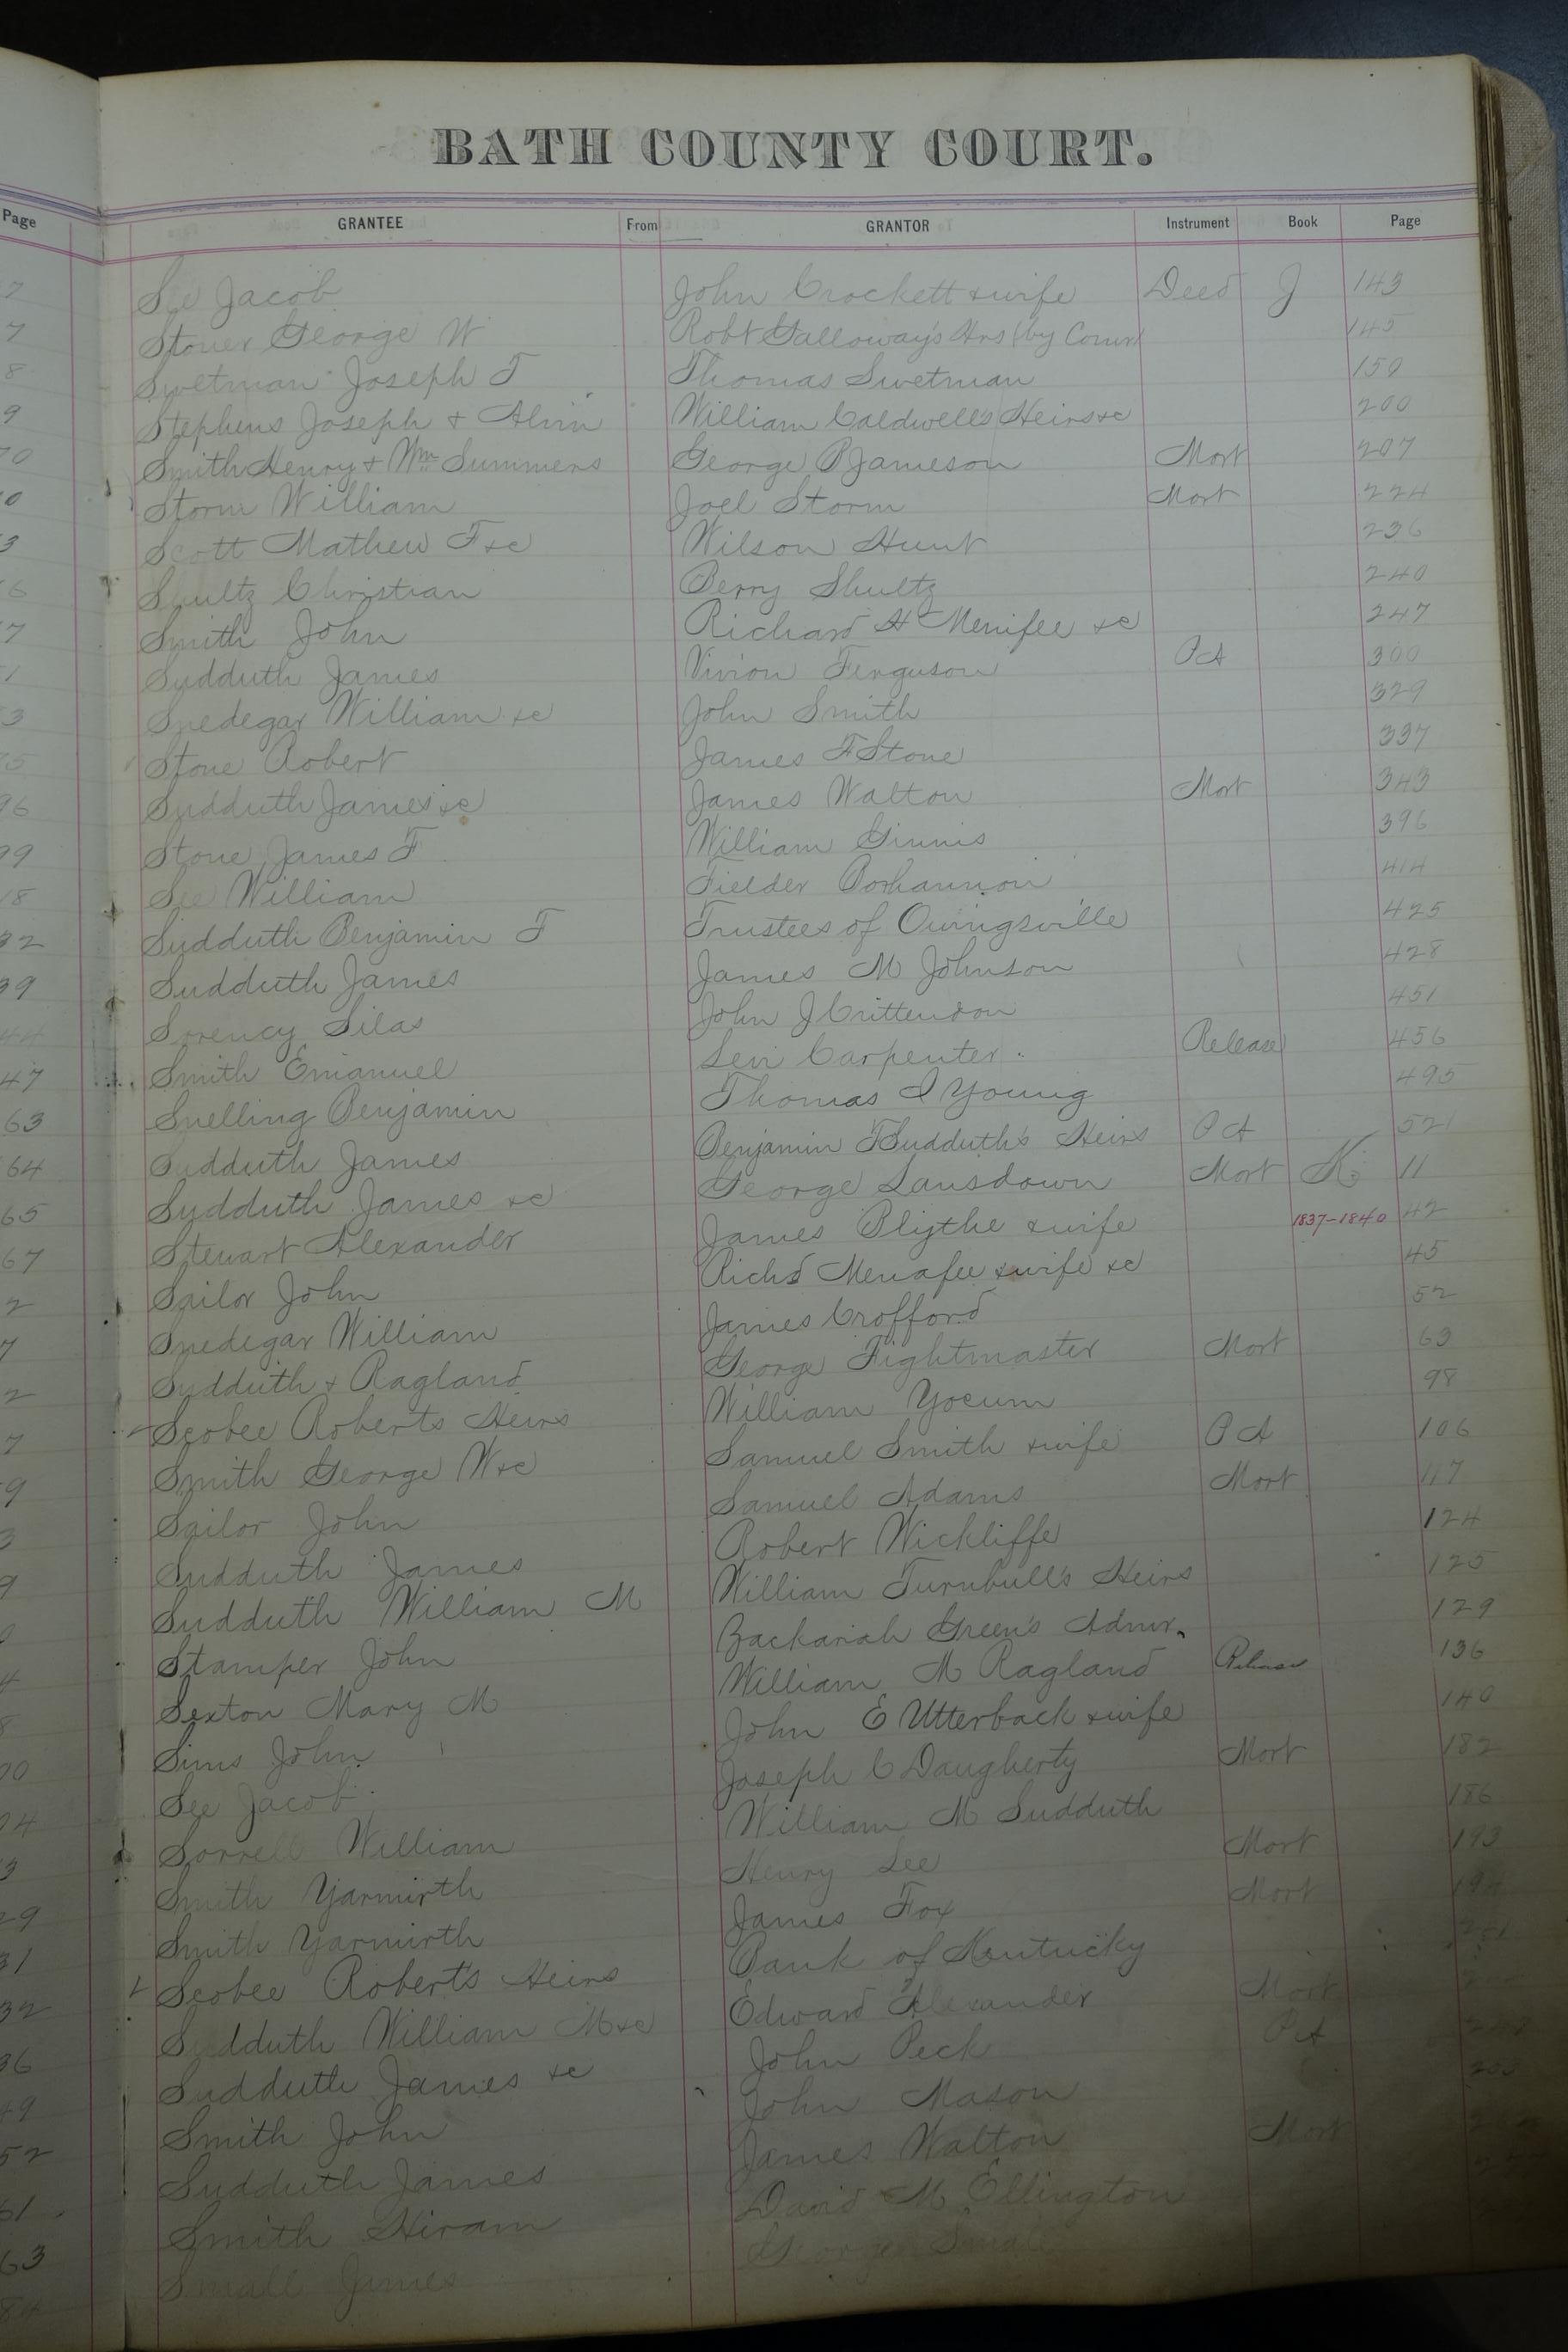 BATH COUNTY COURT.
Page GRANTEE From GRANTOR Instrument Book Page
See Jacob John Crockett & wife Deed J 143
Stoner George W Robt Galloway's Hrs (by Comr) 145
Swetman Joseph F Thomas Swetman 150
Stephens Joseph & Alvin William Caldwell's Heirs &c 200
Smith Henry & Wm Summers George B Jameson Mort 207
Storm William Joel Storm Mort 224
Scott Mathew F &c Wilson Hunt 236
Shultz Christian Berry Shultz 240
Smith John Richard H Menifee &c 247
Sudduth James Vivion Ferguson P A 300
Snedegar William &c John Smith 329
Stone Robert James F Stone 337
Sudduth James &c James Walton Mort 343
Stone James F William Ginnis 396
See William Fielder Bohannon 414
Sudduth Benjamin F Trustees of Owingsville 425
Sudduth James James M Johnson 428
Sorency Silas John J Crittendon 451
Smith Emanuel Levi Carpenter Release 456
Snelling Benjamin Thomas I Young 495
Sudduth James Benjamin F Sudduth's Heirs P A 521
Sudduth James &c George Lansdown Mort K 11
Stewart Alexander James Blythe & wife 1837-1840 42
Sailor John Richd Menafee & wife &c 45
Snedegar William James Crofford 52
Sudduth & Ragland George Fightmaster Mort 63
Scobee Roberts Heirs William Yocum 98
Smith George W &c Samuel Smith & wife P A 106
Sailor John Samuel Adams Mort 117
Sudduth James Robert Wickliffe 124
Sudduth William M William Turnbull's Heirs 125
Stamper John Zachariah Green's Admr. 129
Sexton Mary M William M Ragland Release 136
Sims John John E Utterback & wife 140
See Jacob Joseph C Daugherty Mort 182
Sorrell William William M Sudduth 186
Smith Yarmirth Henry Lee Mort 193
Smith Yarmirth James Fox Mort
Scobee Robert's Heirs Bank of Kentucky
Sudduth William M &c Edward Alexander Mort
Sudduth James &c John Peck P A
Smith John John Mason
Sudduth James James Walton Mort
Smith Hiram David M Ellington
Small James George Small